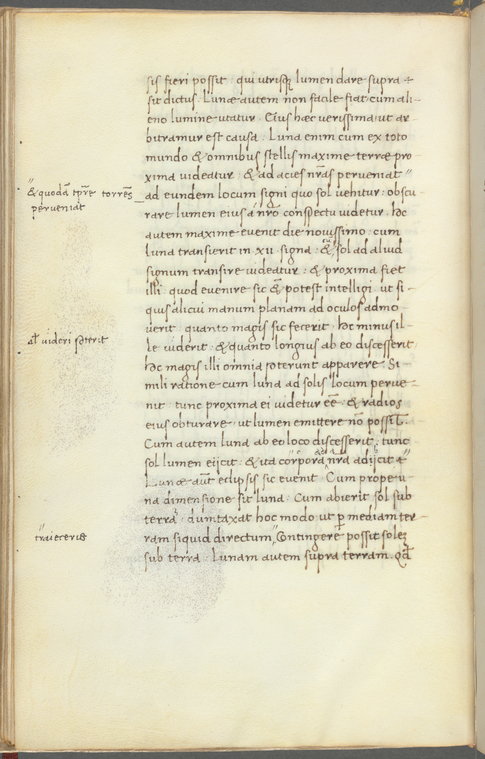 sis fieri possit · qui utrisq; lumen dare supra &
sit dictus · Lunæ autem non facile fiat cum ali-
eno lumine utatur · Eius hæc verissima ut ar-
bitramur est causa · Luna enim cum ex toto
mundo & omnibus stellis maxime terræ pro
xima videatur · & ad acies nr̃as perveniat"
" & quodã tp̃re torrẽs
perveniat
ad eundem locum signi quo sol vehitur · obscu-
rare lumen eius a nr̃o conspectu videtur · hoc
autem maxime evenit die novissimo · cum
luna transierit in xii signa · & sol ad aliud
signum transire videatur · & proxima fiet
illi · quod evenire sic & potest intelligi · ut si-
quis alicui manum planam ad oculos admo-
uerit · quanto magis sic fecerit · hoc minus il-
al' videri poterit
le viderit · & quanto longius ab eo discesserit
hoc magis illi omnia poterunt apparere · Si
mili ratione cum luna ad solis locum perve-
nit · tunc proxima ei videtur eẽ · & radios
eius obturare · ut lumen emittere nõ possit ·
Cum autem luna ab eo loco discesserit · tunc
sol lumen eijcit · & ita corpora nr̃a adijcit &
Lunæ aũt eclipsis sic evenit · Cum prope u-
na dimensione sit luna · Cum abierit sol sub
terrã · dumtaxat hoc modo ut p̱ mediam ter-
" traieceris
ram siquid directum" Contingere possit solẽ
sub terra · Lunam autem supra terram · Qđ